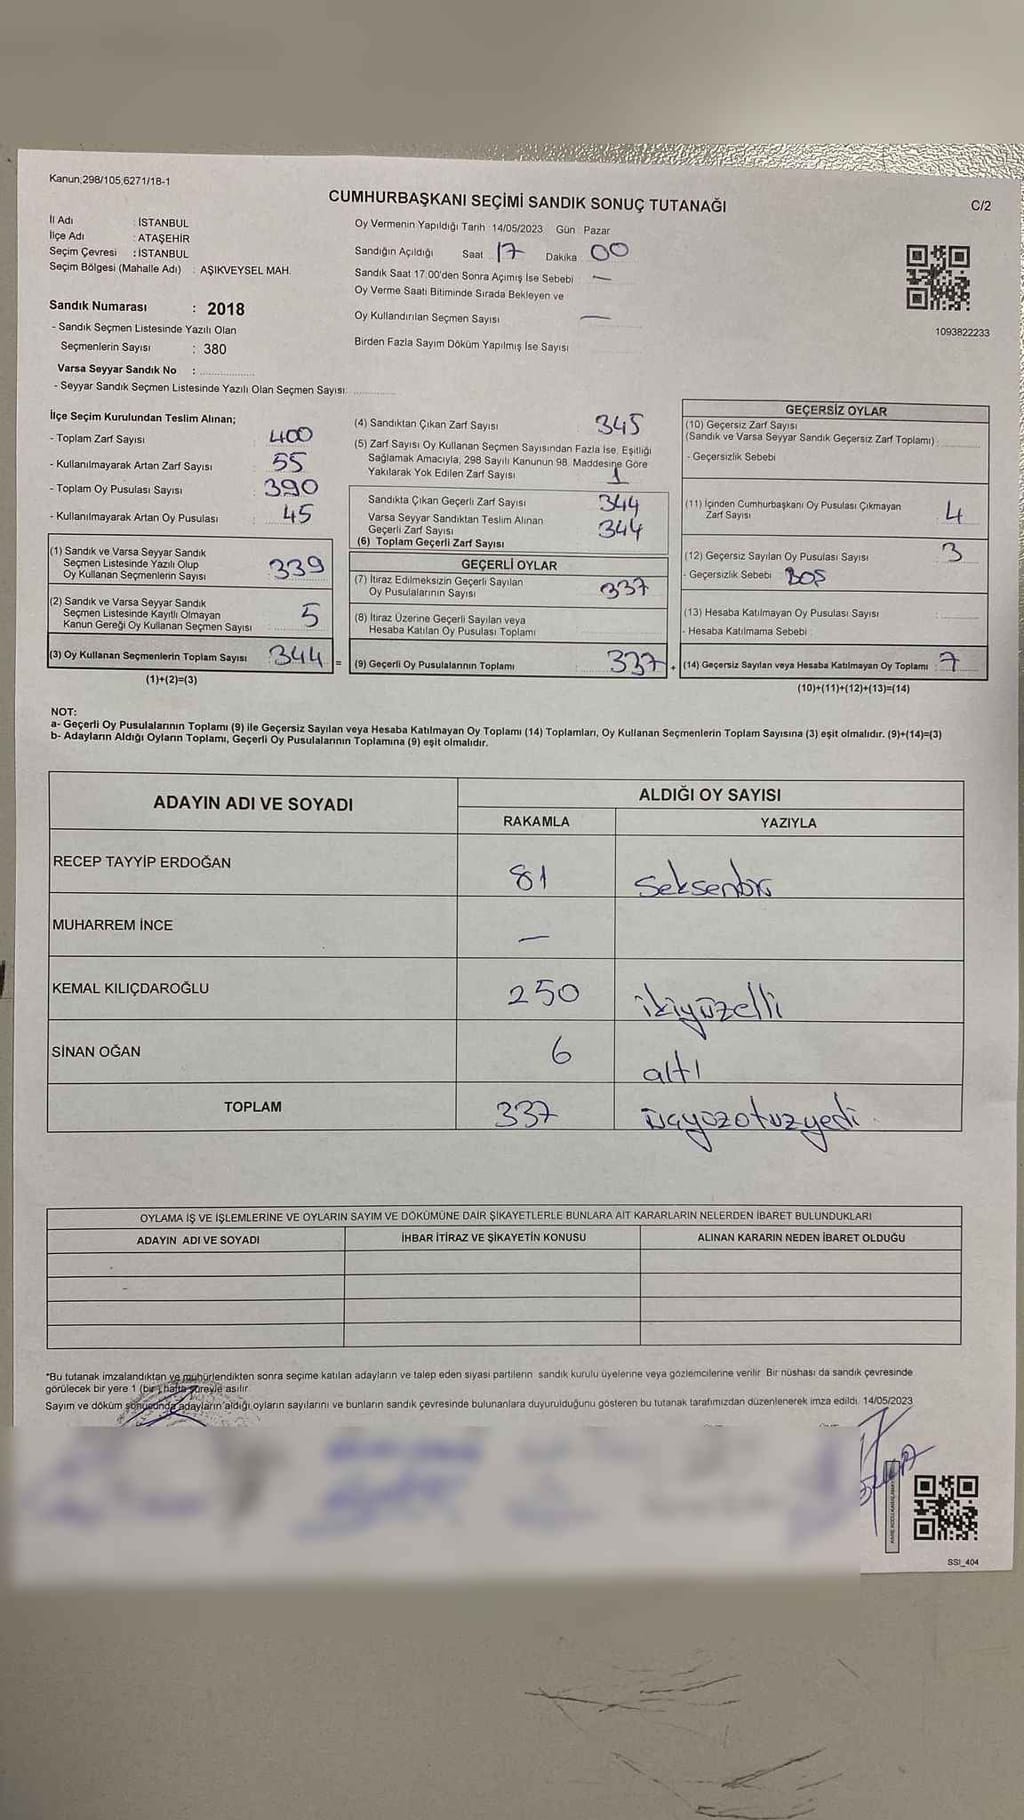 Kanun;298/105,6271/18-1
CUMHURBAŞKANI SEÇİMİ SANDIK SONUÇ TUTANAĞI
C/2
İl Adı : İSTANBUL
İlçe Adı : ATAŞEHİR
Seçim Çevresi : İSTANBUL
Seçim Bölgesi (Mahalle Adı) : AŞIKVEYSEL MAH.
Oy Vermenin Yapıldığı Tarih 14/05/2023 Gün Pazar
Sandığın Açıldığı Saat 17 Dakika 00
Sandık Saat 17.00'den Sonra Açımış İse Sebebi —
Oy Verme Saati Bitiminde Sırada Bekleyen ve
Oy Kullandırılan Seçmen Sayısı —
Birden Fazla Sayım Döküm Yapılmış İse Sayısı
1093822233
Sandık Numarası : 2018
- Sandık Seçmen Listesinde Yazılı Olan
Seçmenlerin Sayısı : 380
Varsa Seyyar Sandık No :
- Seyyar Sandık Seçmen Listesinde Yazılı Olan Seçmen Sayısı:
İlçe Seçim Kurulundan Teslim Alınan;
- Toplam Zarf Sayısı 400
- Kullanılmayarak Artan Zarf Sayısı 55
- Toplam Oy Pusulası Sayısı 390
- Kullanılmayarak Artan Oy Pusulası 45
(1) Sandık ve Varsa Seyyar Sandık
Seçmen Listesinde Yazılı Olup
Oy Kullanan Seçmenlerin Sayısı 339
(2) Sandık ve Varsa Seyyar Sandık
Seçmen Listesinde Kayıtlı Olmayan
Kanun Gereği Oy Kullanan Seçmen Sayısı 5
(3) Oy Kullanan Seçmenlerin Toplam Sayısı 344 =
(1)+(2)=(3)
(4) Sandıktan Çıkan Zarf Sayısı 345
(5) Zarf Sayısı Oy Kullanan Seçmen Sayısından Fazla İse, Eşitliği
Sağlamak Amacıyla, 298 Sayılı Kanunun 98. Maddesine Göre
Yakılarak Yok Edilen Zarf Sayısı 1
Sandıkta Çıkan Geçerli Zarf Sayısı 344
Varsa Seyyar Sandıktan Teslim Alınan
Geçerli Zarf Sayısı 344
(6) Toplam Geçerli Zarf Sayısı
GEÇERLİ OYLAR
(7) İtiraz Edilmeksizin Geçerli Sayılan
Oy Pusulalarının Sayısı 337
(8) İtiraz Üzerine Geçerli Sayılan veya
Hesaba Katılan Oy Pusulası Toplamı
(9) Geçerli Oy Pusulalarının Toplamı 337 +
GEÇERSİZ OYLAR
(10) Geçersiz Zarf Sayısı
(Sandık ve Varsa Seyyar Sandık Geçersiz Zarf Toplamı) :
- Geçersizlik Sebebi
(11) İçinden Cumhurbaşkanı Oy Pusulası Çıkmayan
Zarf Sayısı 4
(12) Geçersiz Sayılan Oy Pusulası Sayısı 3
- Geçersizlik Sebebi BOŞ
(13) Hesaba Katılmayan Oy Pusulası Sayısı
- Hesaba Katılmama Sebebi :
(14) Geçersiz Sayılan veya Hesaba Katılmayan Oy Toplamı : 7
(10)+(11)+(12)+(13)=(14)
NOT:
a- Geçerli Oy Pusulalarının Toplamı (9) ile Geçersiz Sayılan veya Hesaba Katılmayan Oy Toplamı (14) Toplamları, Oy Kullanan Seçmenlerin Toplam Sayısına (3) eşit olmalıdır. (9)+(14)=(3)
b- Adayların Aldığı Oyların Toplamı, Geçerli Oy Pusulalarının Toplamına (9) eşit olmalıdır.
ADAYIN ADI VE SOYADI
ALDIĞI OY SAYISI
RAKAMLA YAZIYLA
RECEP TAYYİP ERDOĞAN 81 Seksenbir
MUHARREM İNCE —
KEMAL KILIÇDAROĞLU 250 ikiyüzelli
SİNAN OĞAN 6 altı
TOPLAM 337 üçyüzotuzyedi
OYLAMA İŞ VE İŞLEMLERİNE VE OYLARIN SAYIM VE DÖKÜMÜNE DAİR ŞİKAYETLERLE BUNLARA AİT KARARLARIN NELERDEN İBARET BULUNDUKLARI
ADAYIN ADI VE SOYADI İHBAR İTİRAZ VE ŞİKAYETİN KONUSU ALINAN KARARIN NEDEN İBARET OLDUĞU
*Bu tutanak imzalandıktan ve mühürlendikten sonra seçime katılan adayların ve talep eden siyasi partilerin sandık kurulu üyelerine veya gözlemcilerine verilir. Bir nüshası da sandık çevresinde
görülecek bir yere 1 (bir) hafta süreyle asılır.
Sayım ve döküm sonucunda adayların aldığı oyların sayılarını ve bunların sandık çevresinde bulunanlara duyurulduğunu gösteren bu tutanak tarafımızdan düzenlenerek imza edildi. 14/05/2023
SSI_404